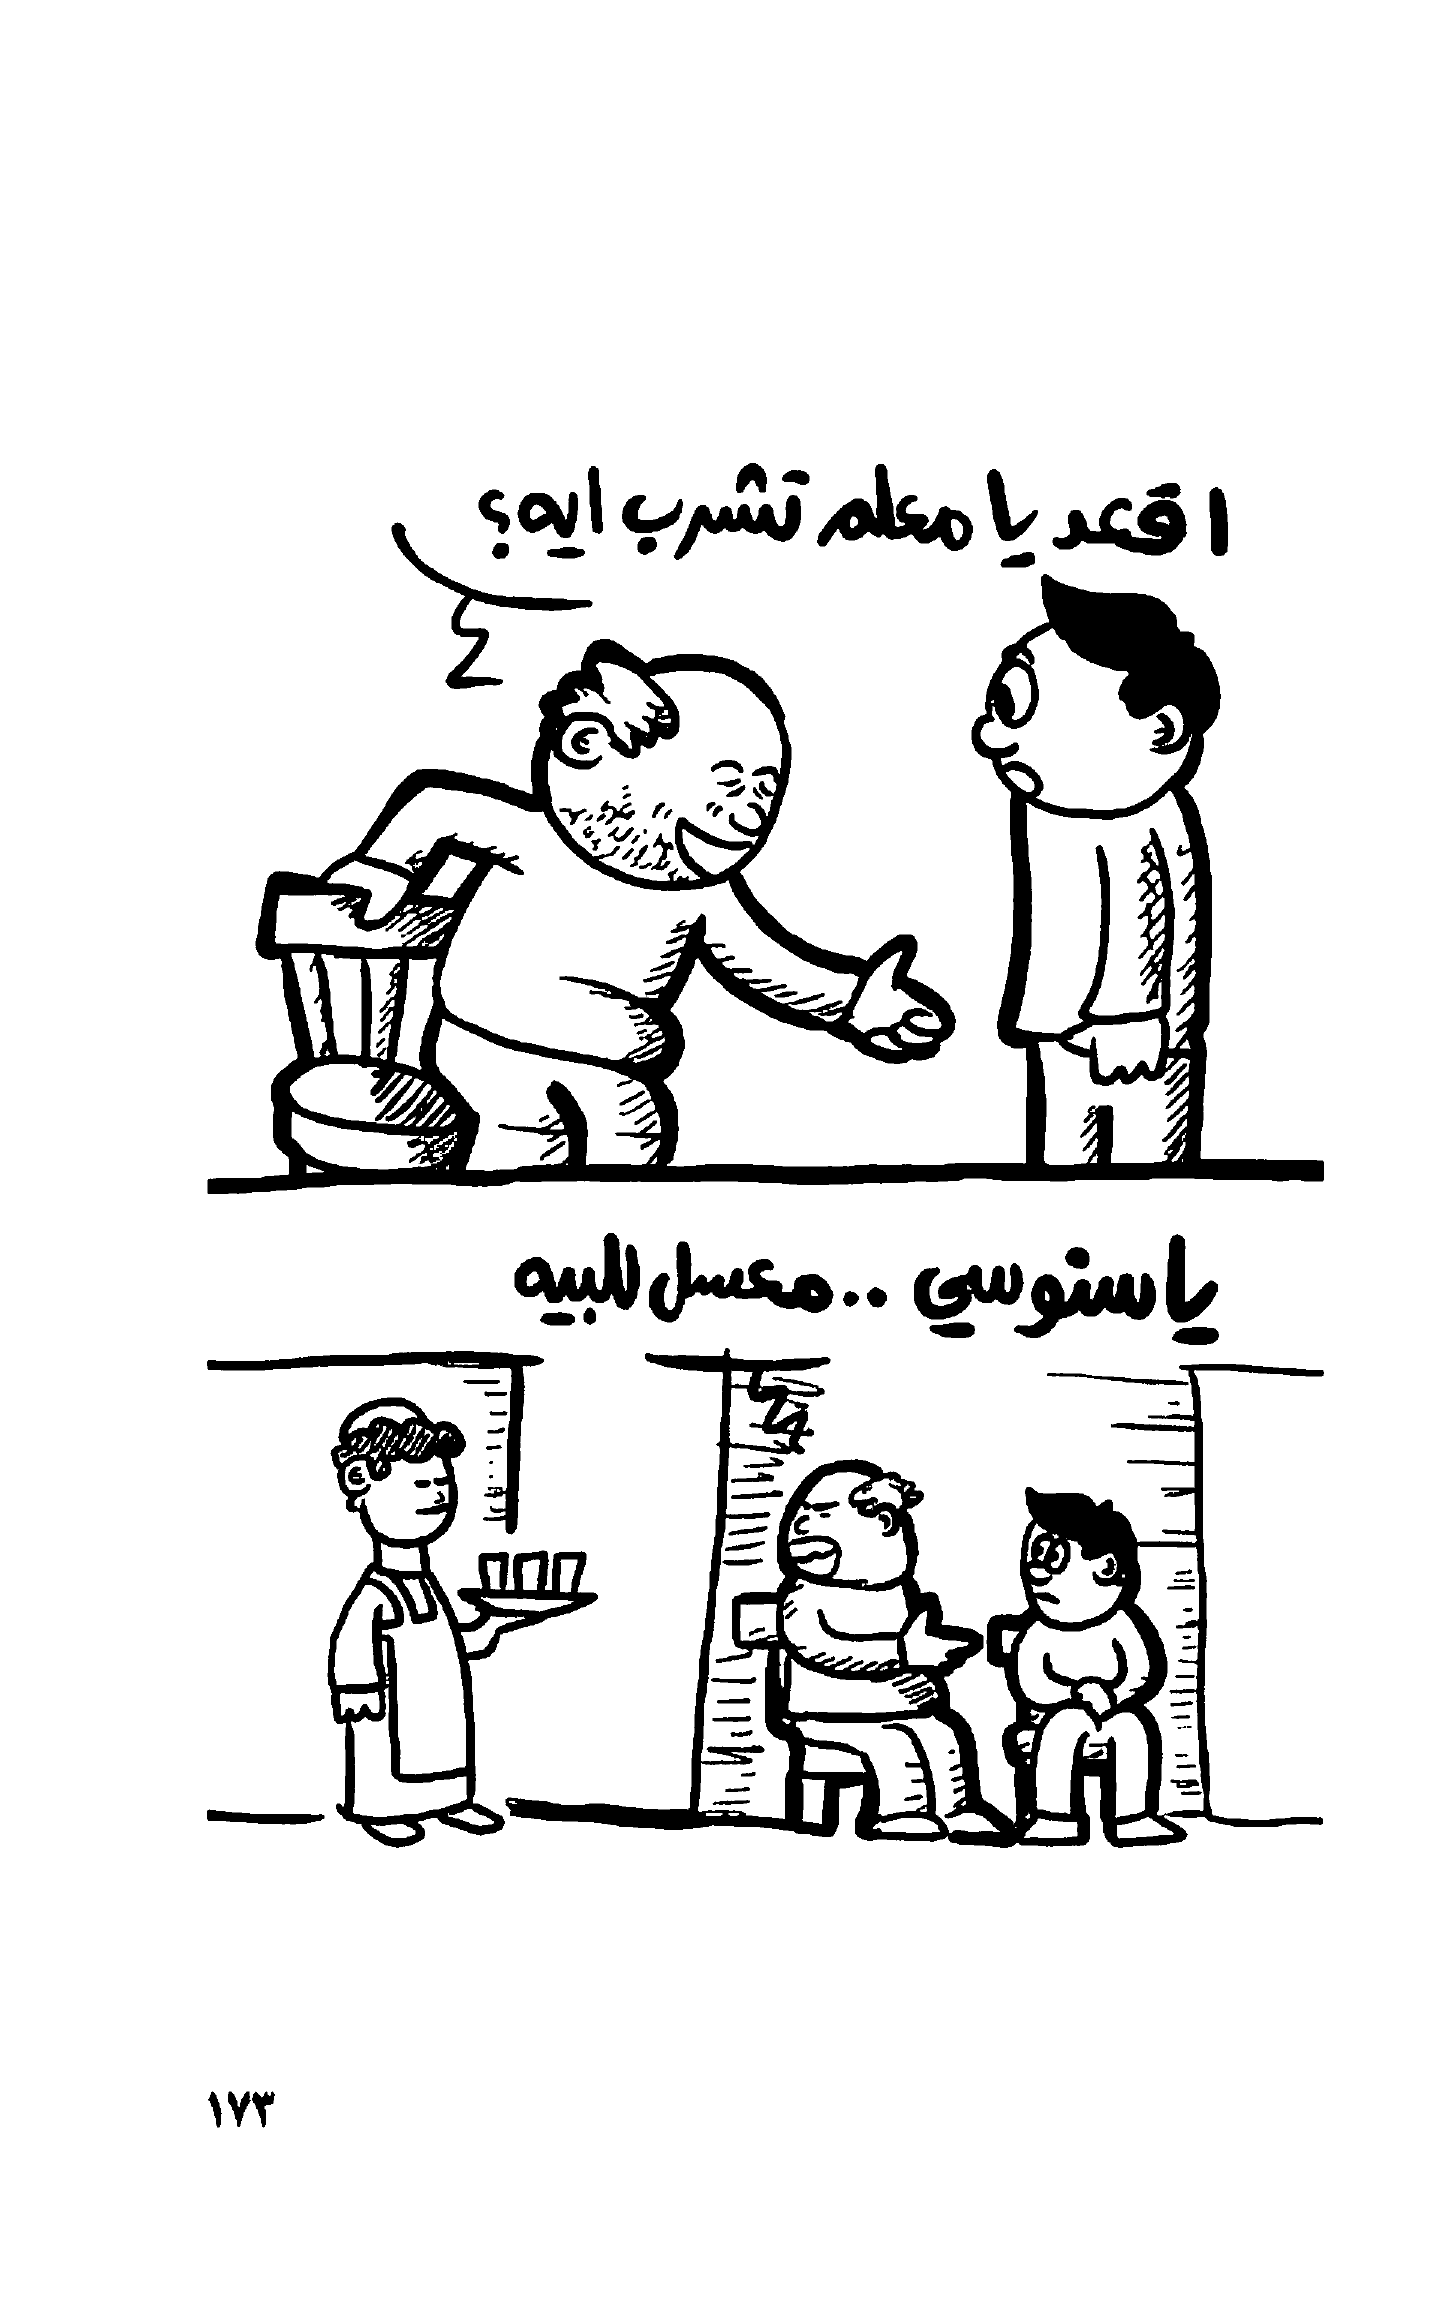 اقعد يا معلم تشرب ايه؟
يا سنوسي .. معسل للبيه
١٧٣